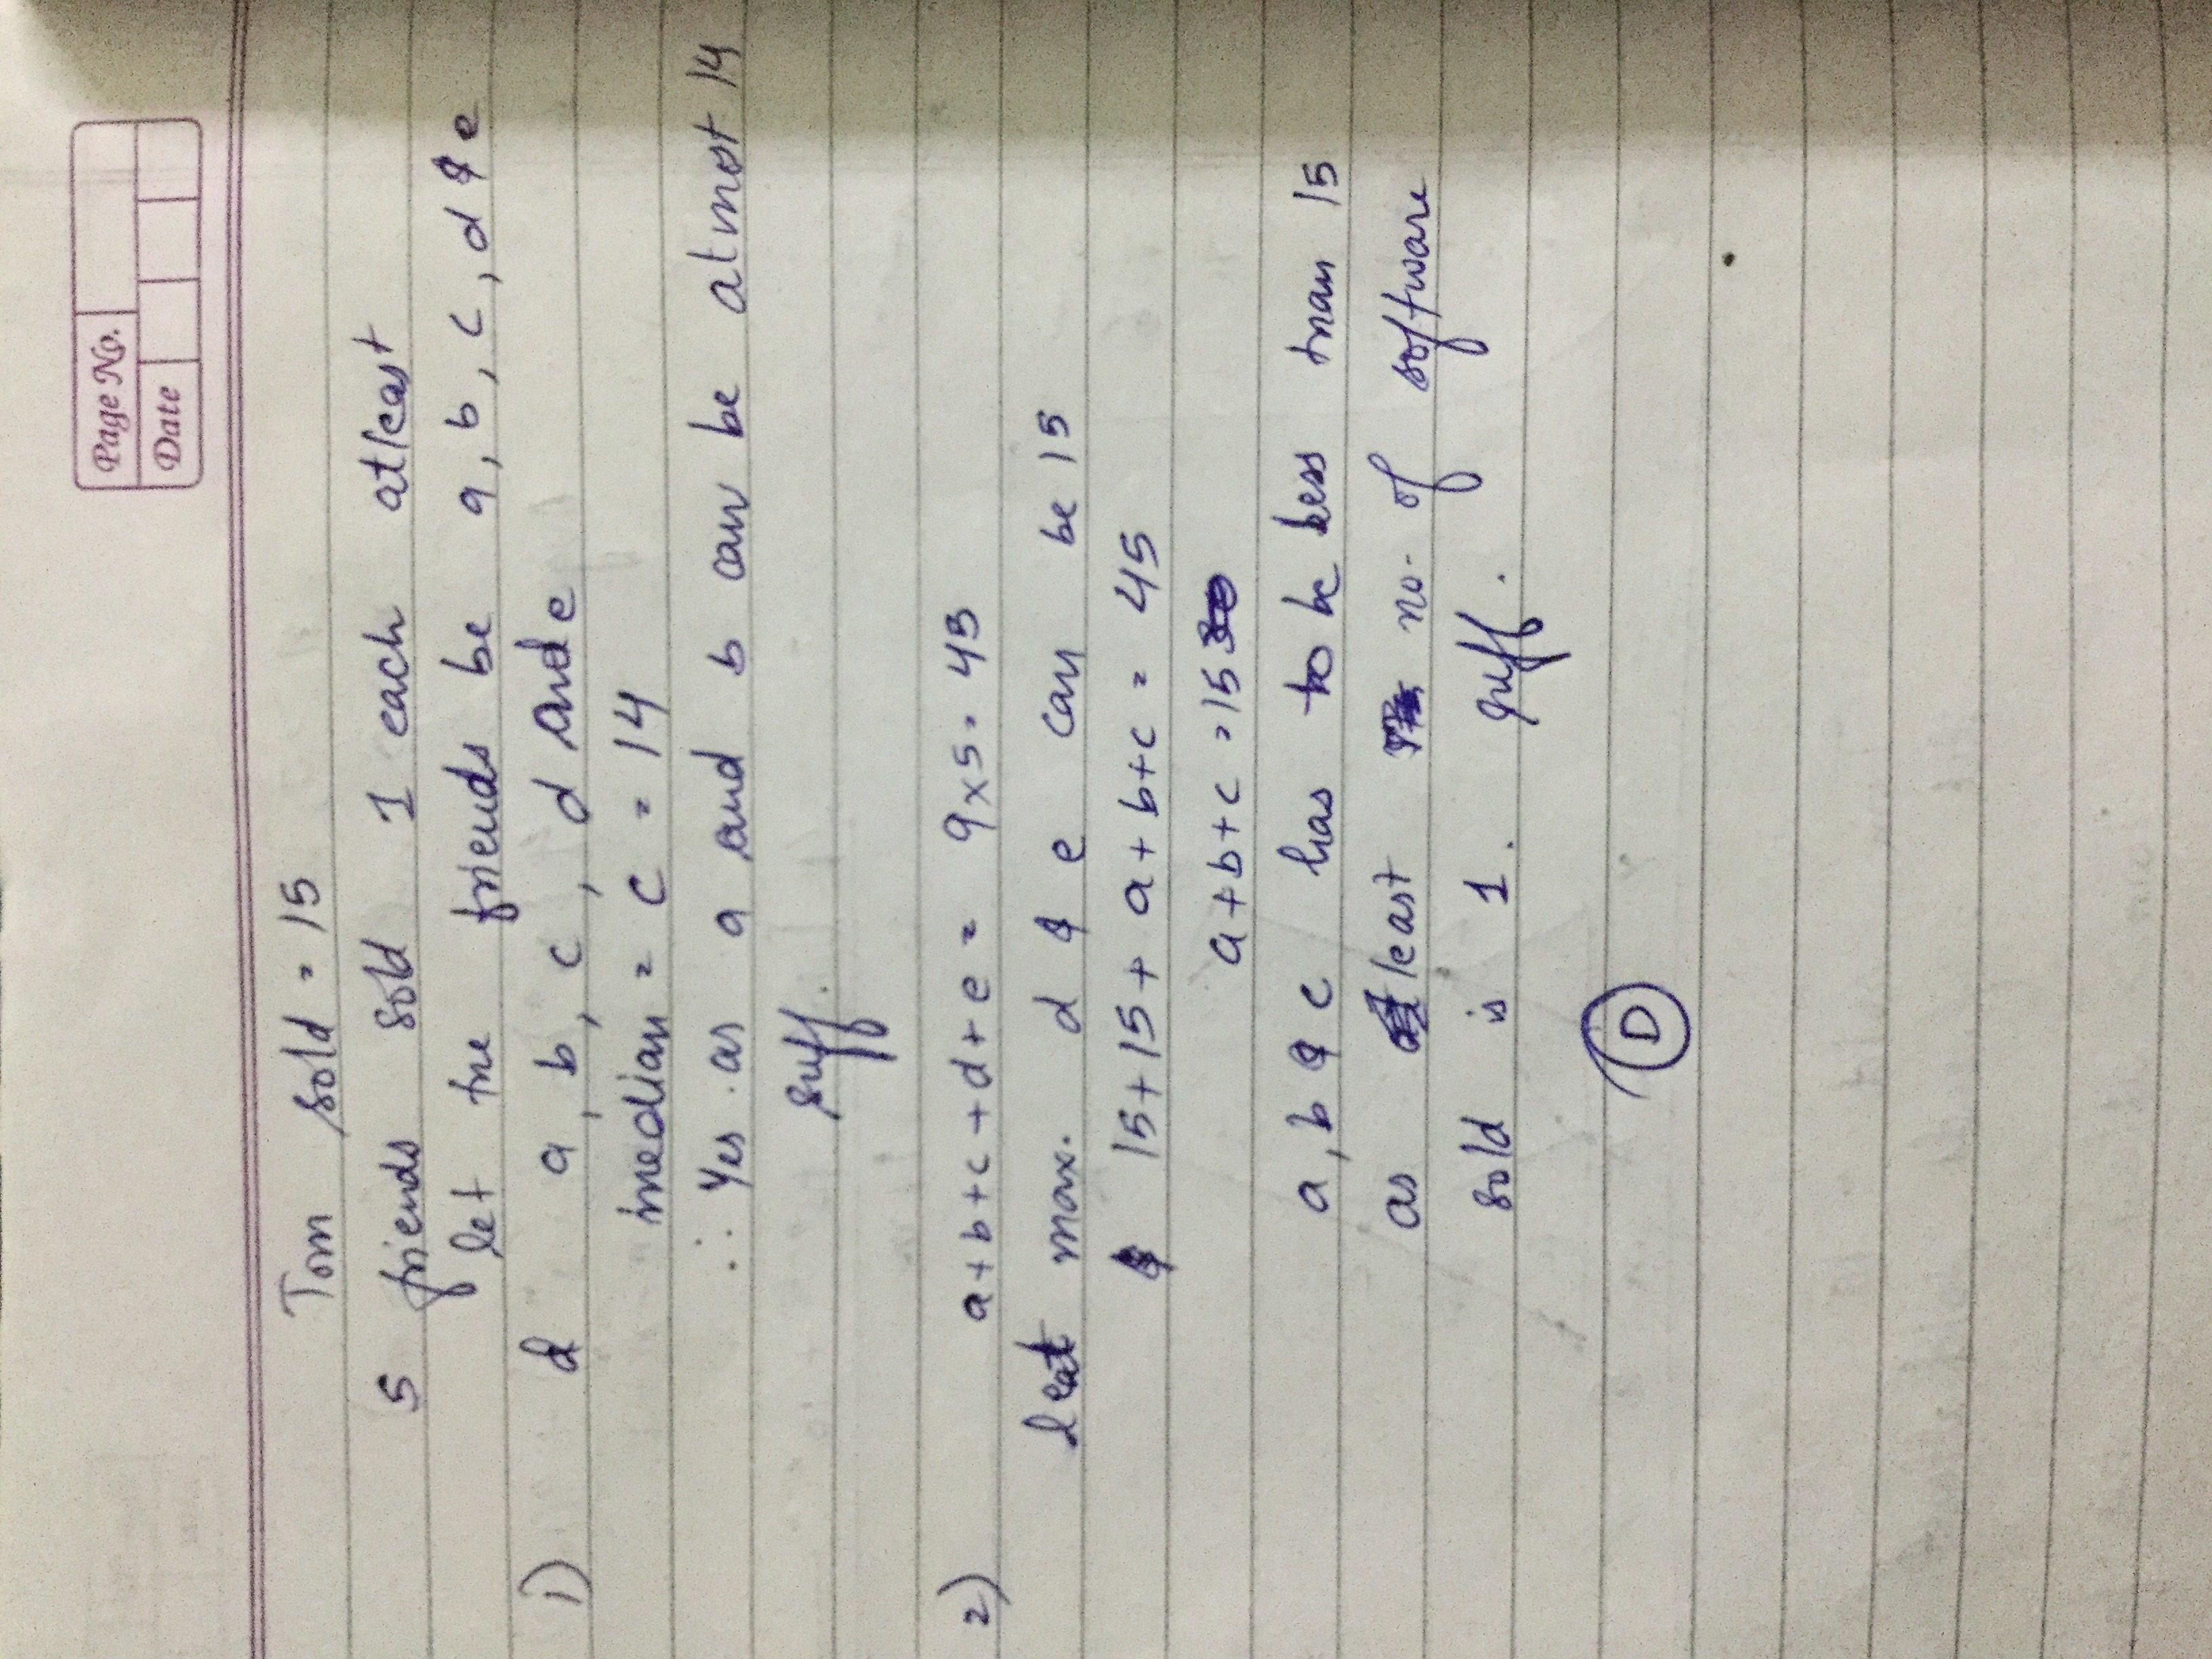 Page No.
Date
Tom sold = 15
5 friends sold 1 each atleast
let the friends be a, b, c, d & e
1) d a, b, c, d and e
median = c = 14
∴ Yes. as a and b can be atmost 14
suff.
2) a+b+c+d+e = 9×5 = 45
let max. d & e can be 15
15+15+a+b+c = 45
a+b+c = 15
a, b & c has to be less than 15
as least no. of software
sold is 1. suff.
D